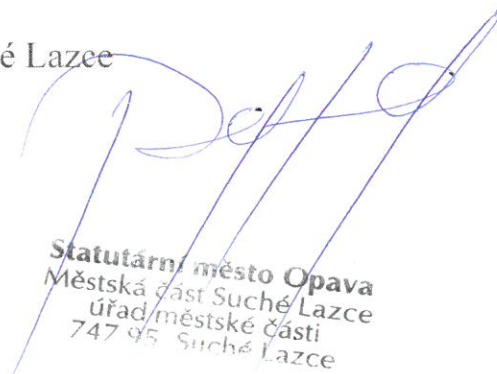 é Lazce
Statutární město Opava
Městská část Suché Lazce
úřad městské části
747 95 Suché Lazce